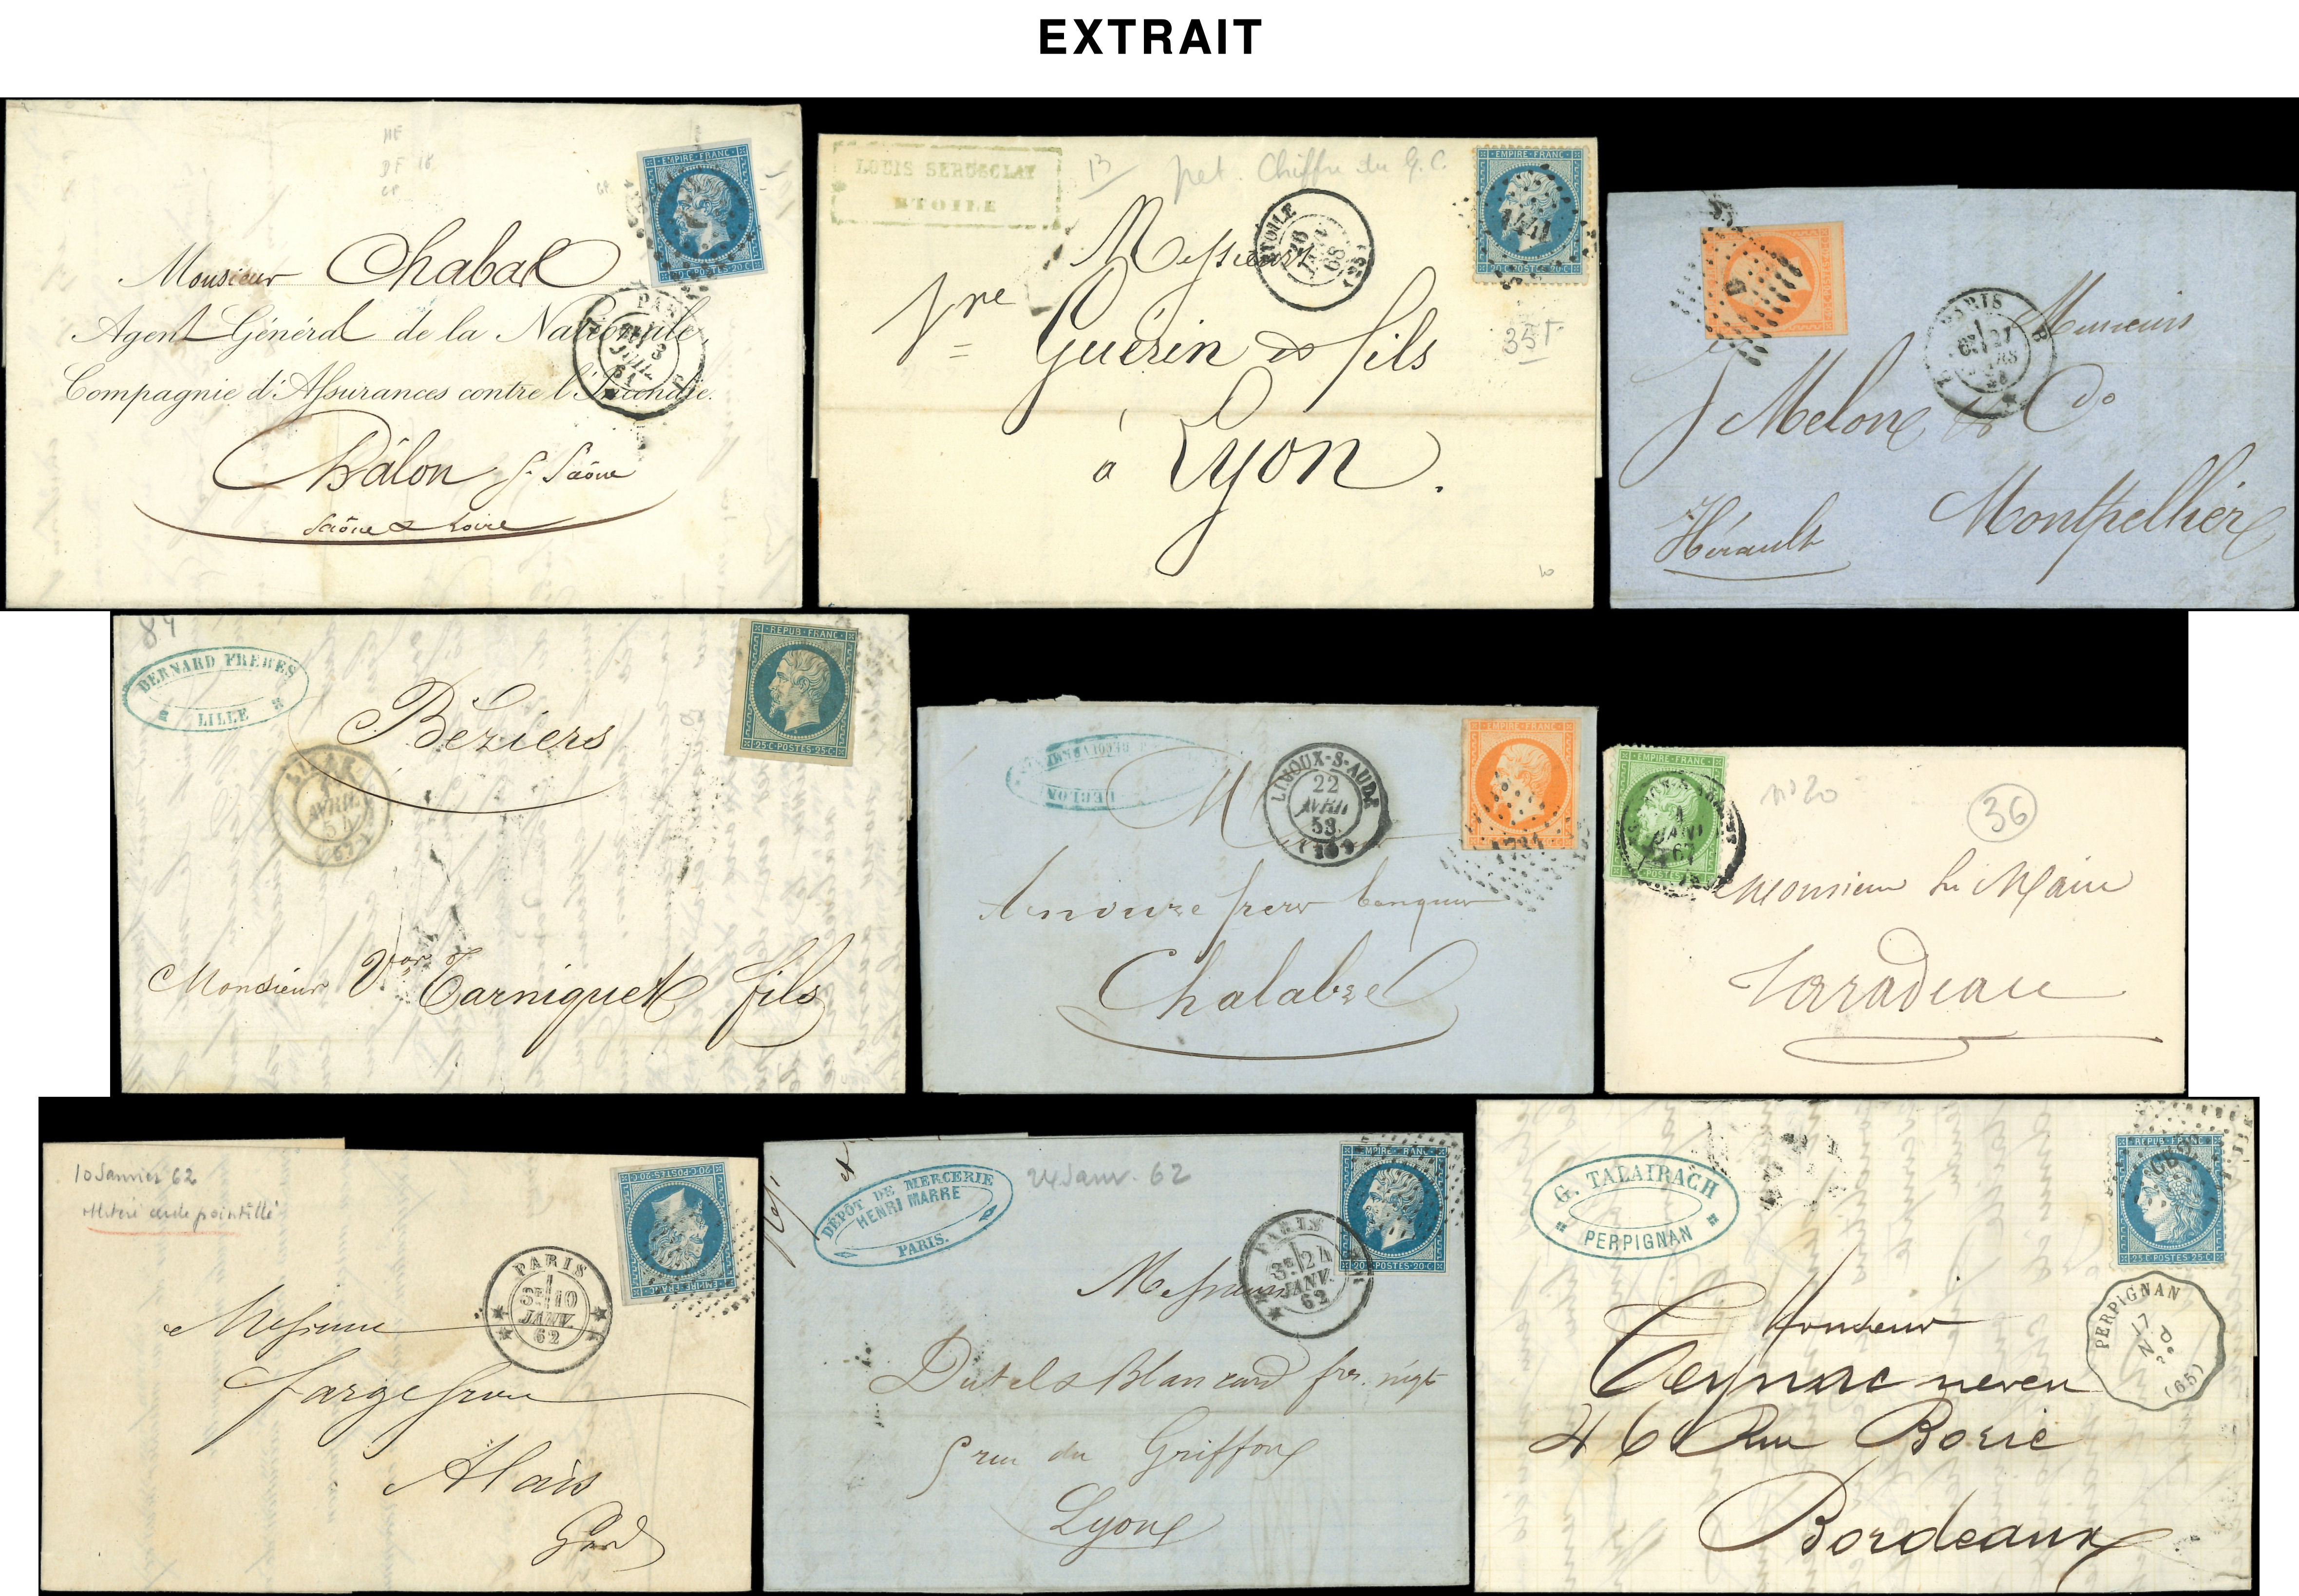 EXTRAIT
EMPIRE FRANC
20 C POSTES 20 C
Monsieur Chabal
Agent Général de la Nationale,
Compagnie d'Assurances contre l'Incendie.
Châlon s. Saône
Saône & Loire
PARIS
3
JUIL.
61
LOUIS SERUSCLAT
ETOILE
13
pet. Chiffre du G.C.
EMPIRE FRANC
20 C POSTES 20 C
ETOILE
26
JANV
68
Messieurs
Vve Guérin & fils
à Lyon.
35F
PARIS
Messieurs
Melon & Co
Montpellier
Hérault
84
BERNARD FRERES
LILLE
REPUB FRANC
25 C POSTES 25 C
Béziers
LILLE
AVRIL
54
Monsieur Vor Tarniquet fils
LIMOUX-S-AUDE
22
AVRIL
58
EMPIRE FRANC
M
frères banquiers
Chalabre
EMPIRE FRANC
POSTES
JANV
67
no 20
36
Monsieur le Maire
Taradeau
10 Janvier 62
étoile pointillé
EMPIRE FRANC
20 C POSTES 20 C
PARIS
3E 10
JANV.
62
Messieurs
Farge frères
Alais
Gard
DEPOT DE MERCERIE
HENRI MARRE
PARIS.
24 Janv. 62
EMPIRE FRANC
20 C POSTES 20 C
PARIS
3E 24
JANV.
62
Messieurs
Blancard frs. nigts
5 rue du Griffon
Lyon
G. TALAIRACH
PERPIGNAN
REPUB FRANC
25 C POSTES 25 C
PERPIGNAN
17
N
(65)
Monsieur
Teynac neveu
46 Rue Borie
Bordeaux